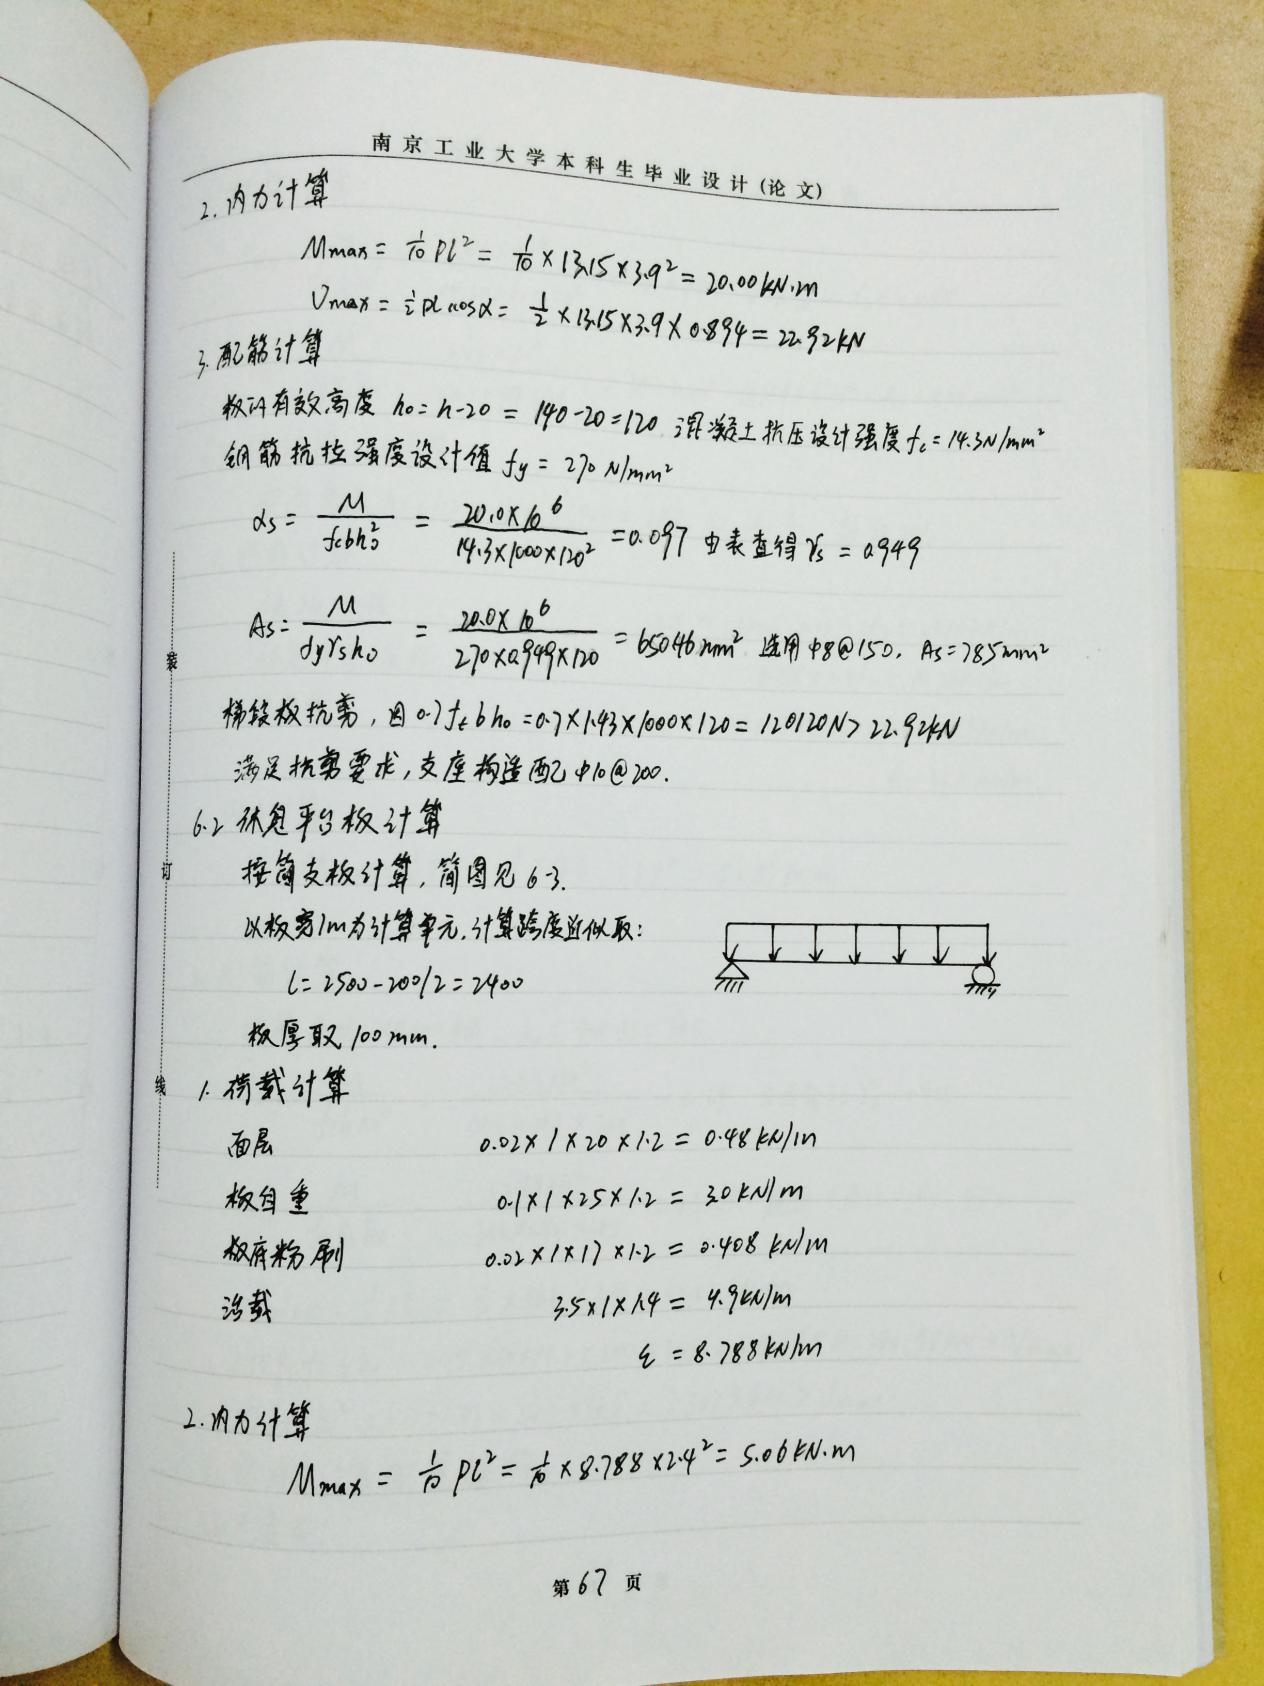 南京工业大学本科生毕业设计(论文)
2.内力计算
Mmax = 1/10 Pl² = 1/10 × 13.15 × 3.9² = 20.00kN.m
Vmax = 1/2 pl cosα = 1/2 × 13.15 × 3.9 × 0.894 = 22.92kN
3.配筋计算
板的有效高度 h0 = h-20 = 140-20=120 混凝土抗压设计强度 fc = 14.3N/mm²
钢筋抗拉强度设计值 fy = 270 N/mm²
αs = M/(fcbh0²) = 20.0×10⁶/(14.3×1000×120²) = 0.097 由表查得 γs = 0.949
As = M/(fyγsh0) = 20.0×10⁶/(270×0.949×120) = 650.46mm² 选用 φ8@150. As=785mm²
梯段板抗剪, 因 0.7ftbh0 = 0.7×1.43×1000×120 = 120120N > 22.92kN
满足抗剪要求, 支座构造配 φ10@200.
6.2 休息平台板计算
按简支板计算, 简图见 6-3.
以板宽1m为计算单元.计算跨度近似取:
l = 2500-200/2 = 2400
板厚取 100mm.
1.荷载计算
面层 0.02×1×20×1.2 = 0.48kN/m
板自重 0.1×1×25×1.2 = 3.0kN/m
板底粉刷 0.02×1×17×1.2 = 0.408 kN/m
活载 3.5×1×1.4 = 4.9kN/m
Σ = 8.788kN/m
2.内力计算
Mmax = 1/10 Pl² = 1/10 × 8.788 × 2.4² = 5.06kN.m
第67页
装
订
线